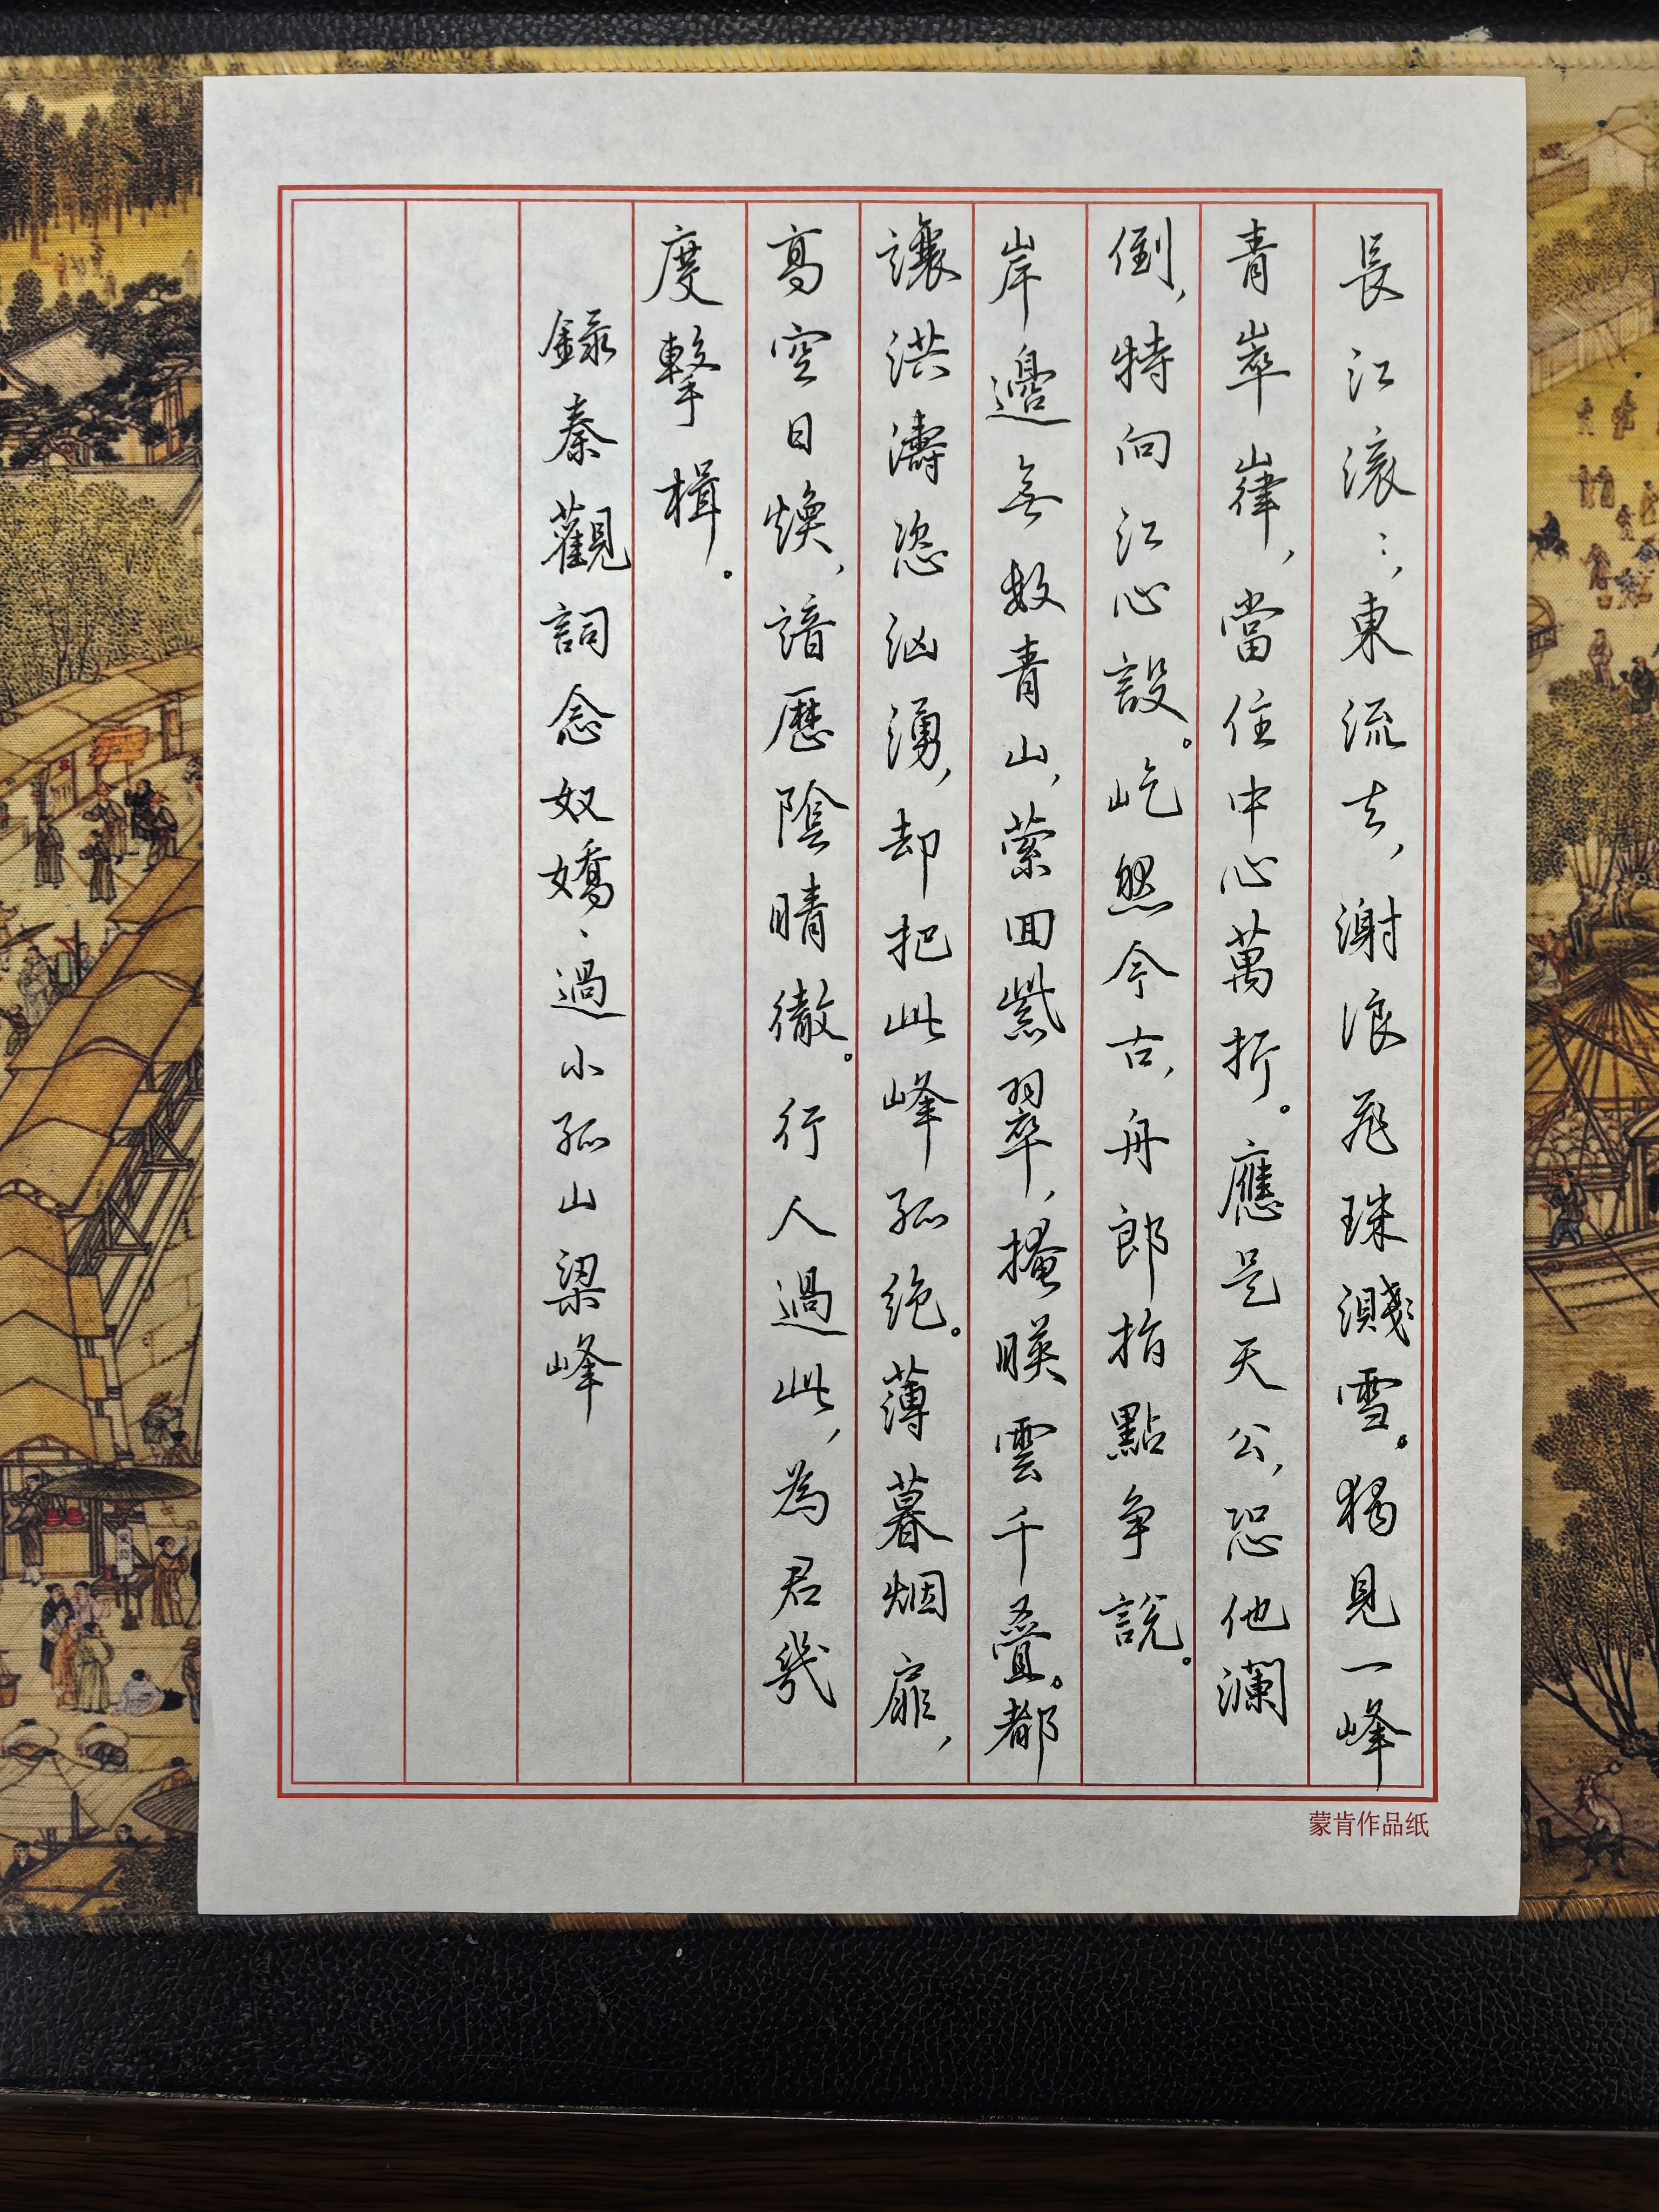 長江滚：，東流去，激浪飛珠濺雪。獨見一峰
青崒嵂，當住中心萬折。應是天公，恐他瀾
倒，特向江心設。屹然今古，舟郎指點争説。
岸邊無数青山，縈回紫翠，掩暎雲千叠。都
讓洪濤恣汹湧，却把此峰孤绝。薄暮烟扉，
高空日焕，諳歷陰晴徹。行人過此，為君幾
度擊楫。
録秦觀詞念奴嬌·過小孤山梁峰
蒙肯作品纸